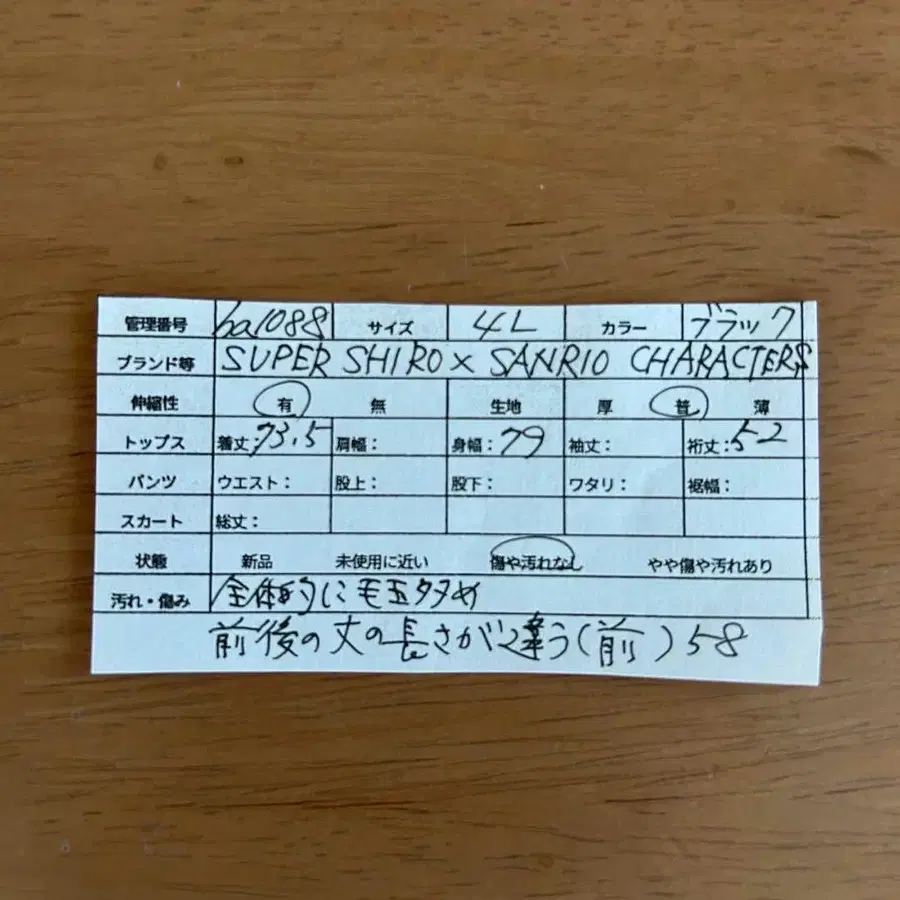 管理番号 ba1088 サイズ 4L カラー ブラック
ブランド等 SUPER SHIRO × SANRIO CHARACTERS
伸縮性 有 無 生地 厚 普 薄
トップス 着丈:73.5 肩幅: 身幅:79 袖丈: 裄丈:52
パンツ ウエスト: 股上: 股下: ワタリ: 裾幅:
スカート 総丈:
状態 新品 未使用に近い 傷や汚れなし やや傷や汚れあり
汚れ・傷み 全体的に毛玉多め
前後の丈の長さが違う(前)58